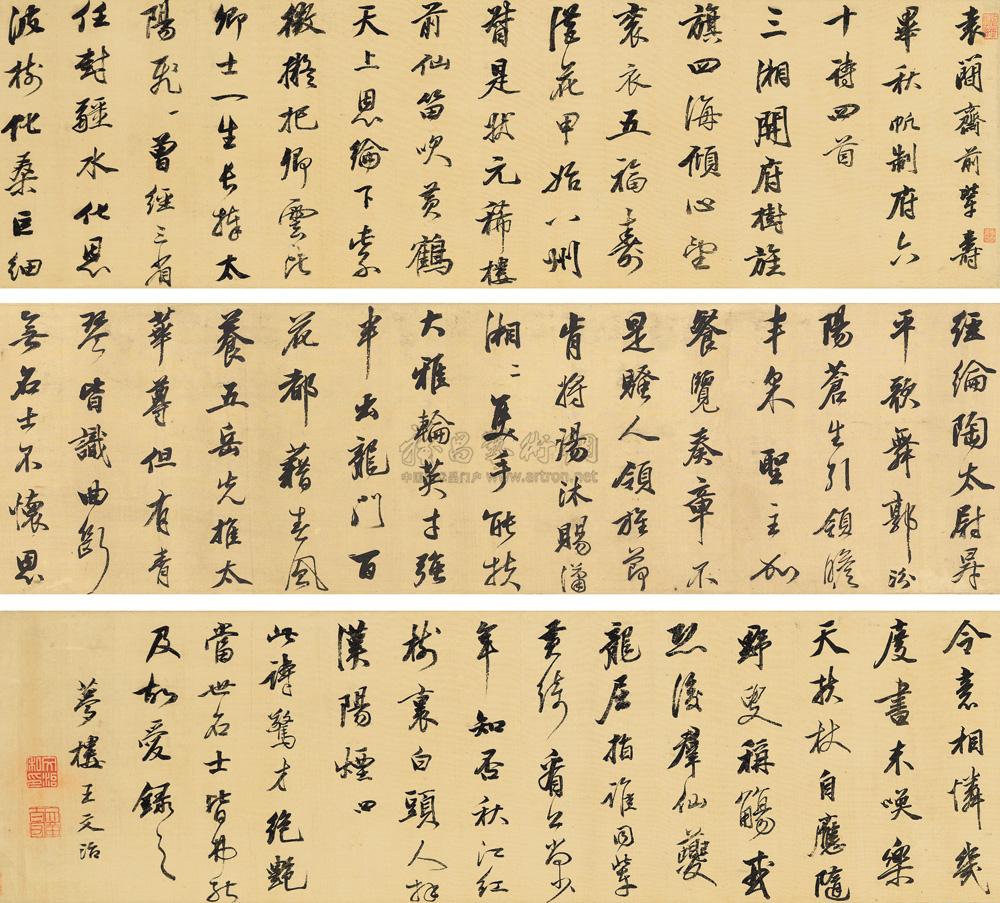 袁簡齋前輩壽
畢秋帆制府六
十詩四首
三湘開府樹旌
旗四海傾心望
袞衣五福壽
從花甲始八州
督是狀元稀樓
前仙笛吹黃鶴
天上恩綸下紫
微擬把卿雲比
卿士一生長捧太
陽飛一曾經三省
任封疆水化恩
波樹化桑巨細
經綸陶太尉昇
平歌舞郭汾
陽蒼生引領瞻
丰采聖主加
餐覽奏章不
是騷人領旌節
肯將湯沐賜瀟
湘二隻手能扶
大雅輪英才強
半出龍門百
花都藉春風
養五岳先推太
華尊但有青
琴皆識曲斷
無名士不懷恩
令意相憐幾
度書來喚樂
天扶杖自應隨
野叟稱觴或
恐後群仙夔
龍屈指誰同輩
黃綺看公尚少
年知否秋江紅
樹裏白頭人拜
漢陽煙四
此詩驚才絕艷
當世名士皆弗能
及故愛錄之
夢樓王文治
www.artron.net